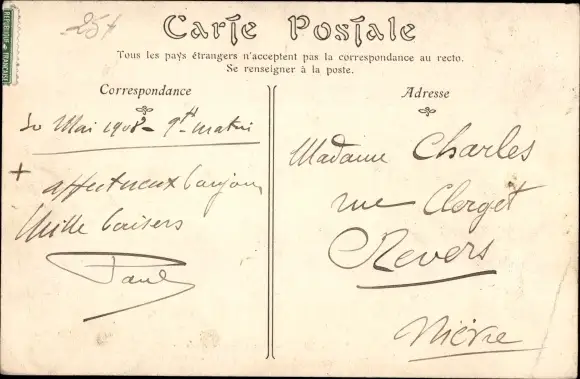 25f
REPUBLIQUE FRANCAISE
Carte Postale
Tous les pays étrangers n'acceptent pas la correspondance au recto.
Se renseigner à la poste.
Correspondance
30 Mai 1908 - 9H matin
+ affectueux bonjour
Mille baisers
Paul
Adresse
Madame Charles
rue Clerget
Nevers
Nièvre